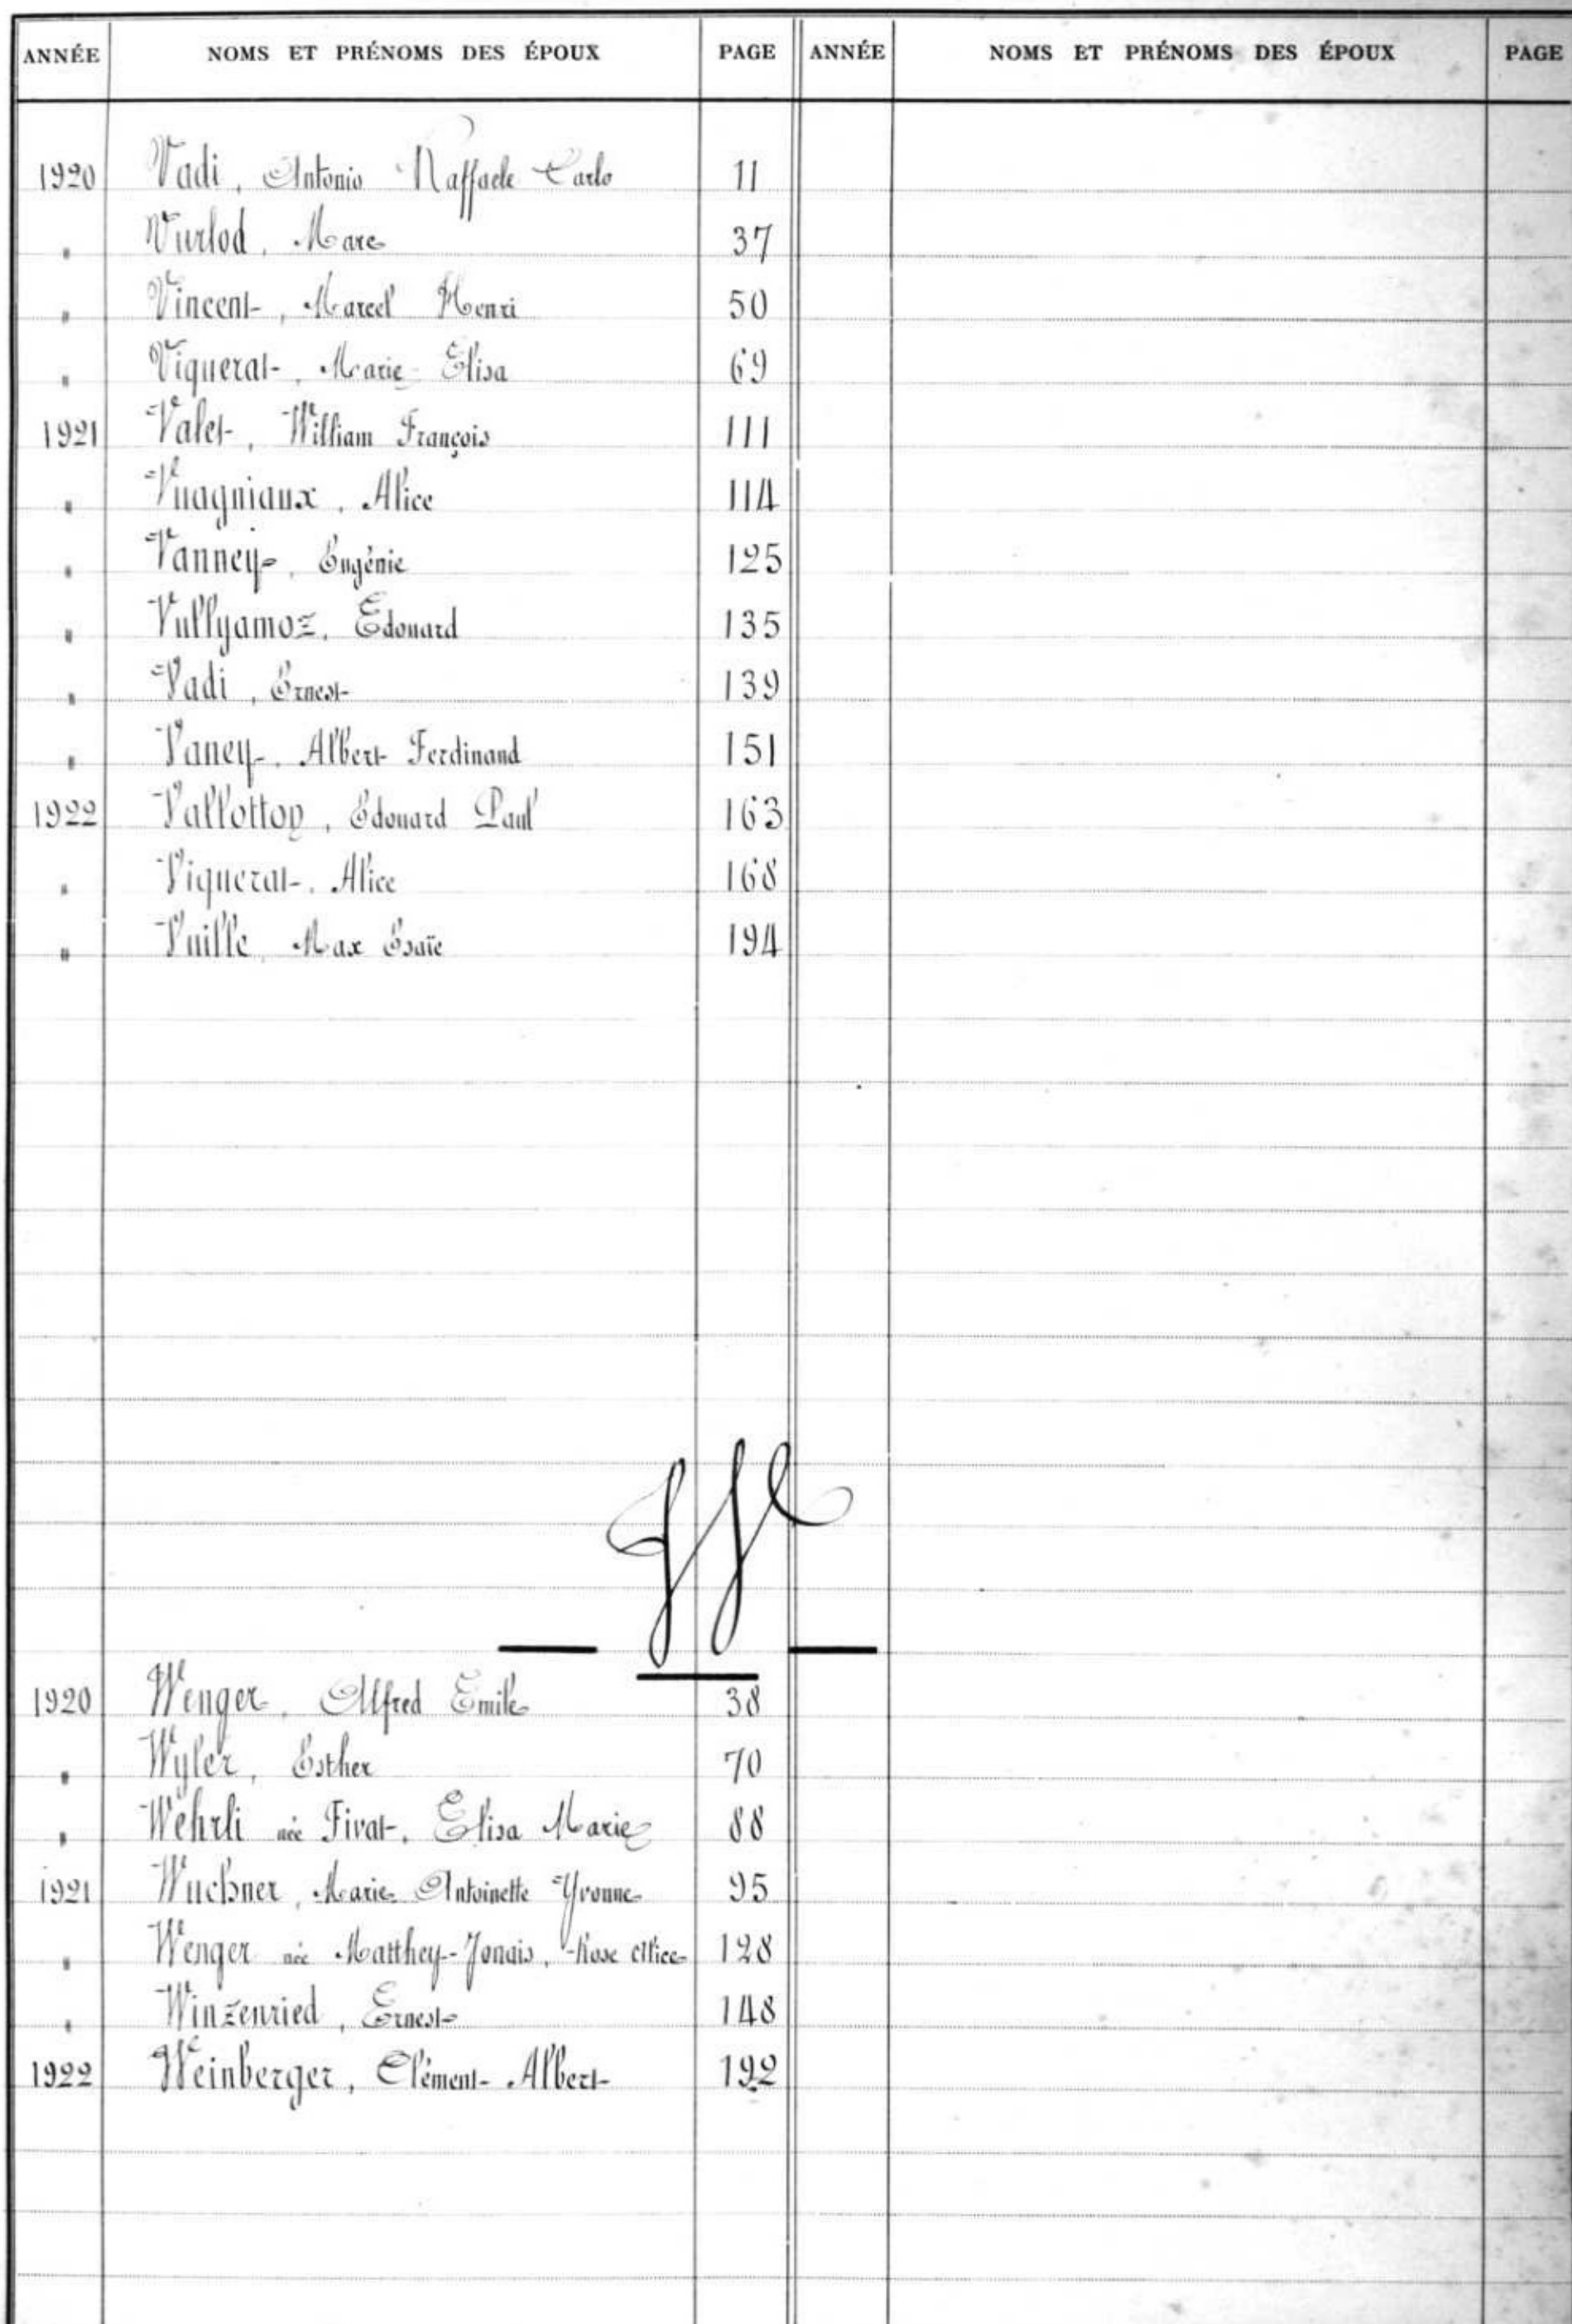 ANNÉE NOMS ET PRÉNOMS DES ÉPOUX PAGE ANNÉE NOMS ET PRÉNOMS DES ÉPOUX PAGE
1920 Vadi, Antonio Raffaele Carlo 11
" Vurlod, Marc 37
" Vincent, Marcel Henri 50
" Viquerat, Marie Elisa 69
1921 Valet, William François 111
" Vuagniaux, Alice 114
" Vanney, Eugénie 125
" Vullyamoz, Edouard 135
" Vadi, Ernest 139
" Vaney, Albert Ferdinand 151
1922 Vallotton, Edouard Paul 163
" Viquerat, Alice 168
" Vuille, Max Esaïe 194
W
1920 Wenger, Alfred Emile 38
" Wyler, Esther 70
" Wehrli née Fivat, Elisa Marie 88
1921 Wuchner, Marie Antoinette Yvonne 95
" Wenger née Matthey-Jonais, Rose Alice 128
" Winzenried, Ernest 148
1922 Weinberger, Clément Albert 192